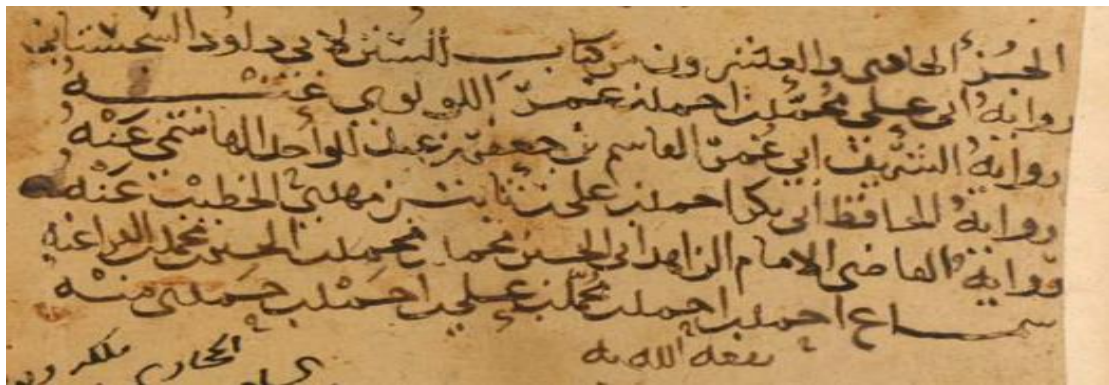 الجزء الخامس والعشرون من كتاب السنن لابي داود السجستاني
رواية ابي علي محمد بن احمد بن عمرو اللولوي عنه
رواية الشريف ابي عمر القاسم بن جعفر بن عبد الواحد الهاشمي عنه
رواية الحافظ ابي بكر احمد بن علي بن ثابت بن مهدي الخطيب عنه
رواية القاضي الامام الزاهد ابي الحسين محمد بن محمد بن الحسين بن محمد بن الفرا عنه
سماع احمد بن احمد بن محمد بن علي بن احمد بن حمدي منه
نفعه الله به